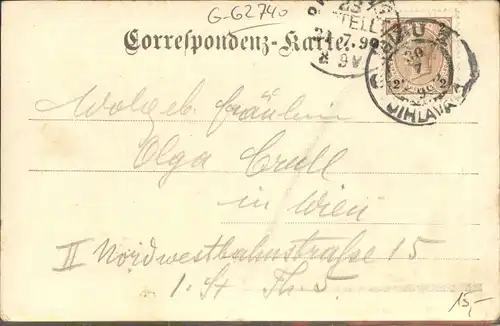 G-62740
Correspondenz-Karte.
BESTELLT
21.7.99
8 9V
IGLAU 2
20
7
JIHLAVA 2
2 2
Wolgeb. Fräulein
Olga Crull
in Wien
II Nordwestbahnstraße 15
1. St Th. 5
15,-